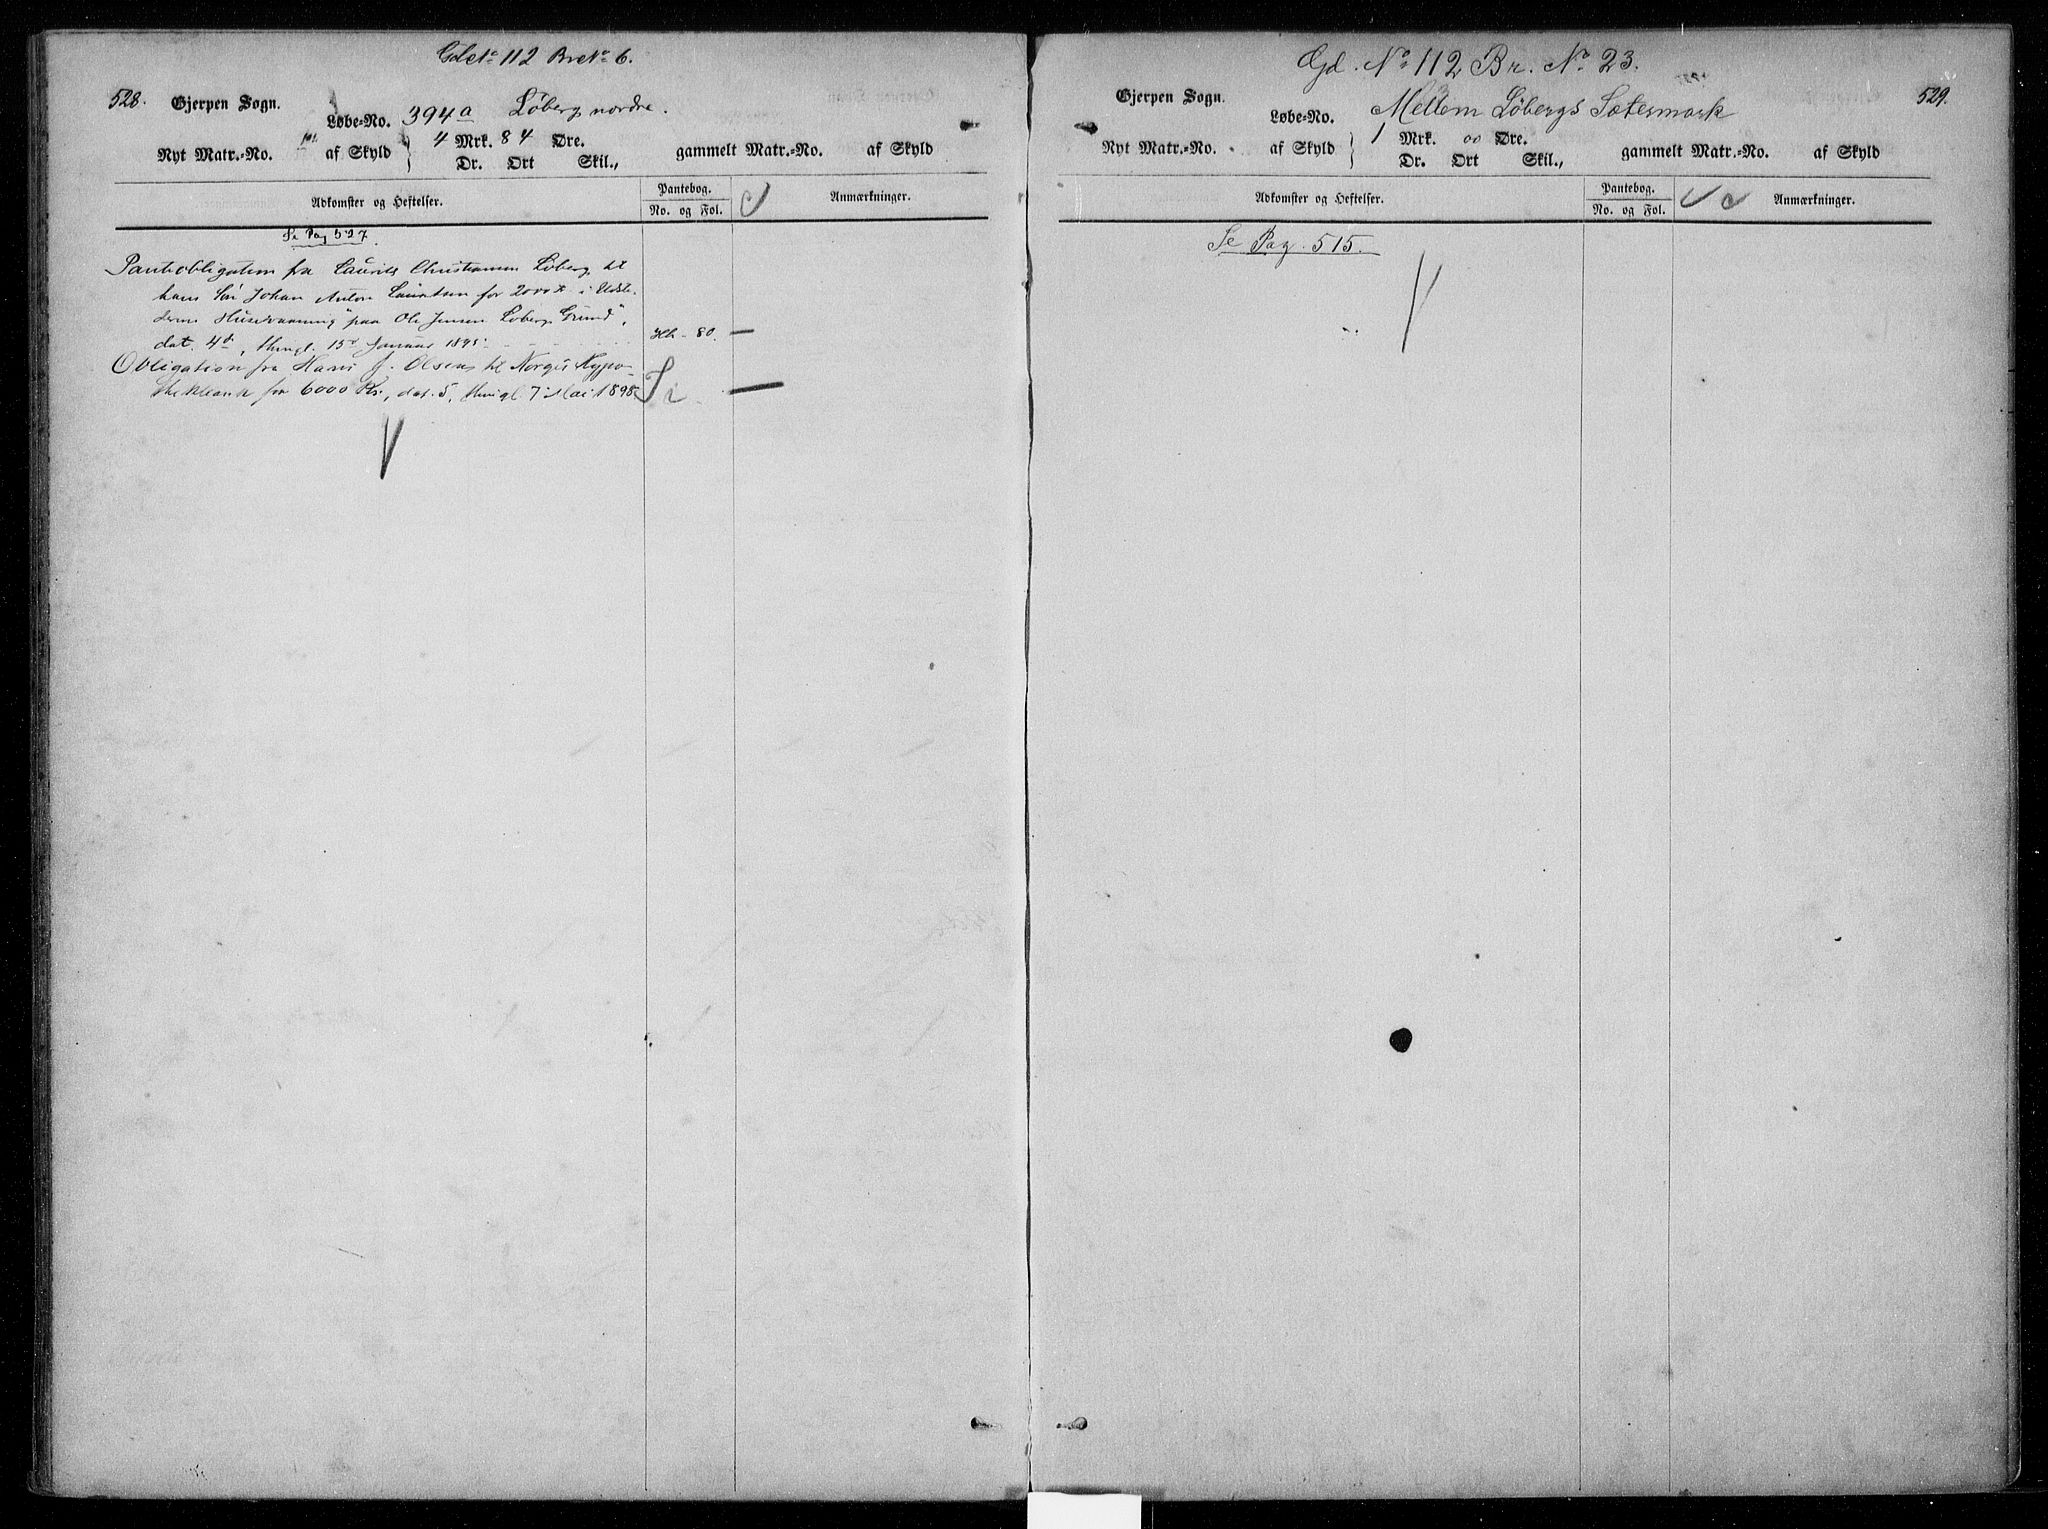 Gd. No 112 Br. No 6.
528. Gjerpen Sogn.
Løbe-No. 394a Løberg nordre.
Nyt Matr.-No. 101 af Skyld 4 Mrk. 84 Øre.
Dr. Ort Skil., gammelt Matr.-No. af Skyld
Adkomster og Heftelser. Pantebog. No. og Fol. Anmærkninger.
Se Pag 527.
Panteobligation fra Laurits Christiansen Løberg til
hans Søn Johan Anton Lauritsen for 2000 Kr i Udste-
derens Huusvaaning "paa Ole Jensen Løbergs Grund",
dat. 4de, thingl. 15de Januar 1895. 80.
Obligation fra Hans J. Olsen til Norges Hypo-
thekbank for 6000 Kr., dat. 5, thingl. 7 Mai 1898
Gd. No 112 Br. No 23.
Gjerpen Sogn. 529.
Løbe-No. Mellem Løbergs Sætermark
Nyt Matr.-No. af Skyld 1 Mrk. 00 Øre.
Dr. Ort Skil., gammelt Matr.-No. af Skyld
Adkomster og Heftelser. Pantebog. No. og Fol. Anmærkninger.
Se Pag. 515.